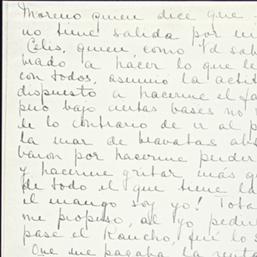 Moreno quien dice que
no tiene salida por mi
Celis, quien, como Ud sab
mado a hacer lo que le
con todos, asumio la acti
dispuesto a hacerme el fa
pero bajo ciertas bases no
le lo contrario de ir al p
la mar de bravatas abs
baron por hacerme perder
y hacerme gritar más q
de todo el que tiene la
el mango soy yo! Tota
me propuso, al yo pedir
pase el Rancho, fué lo s
Que me pagaba la renta